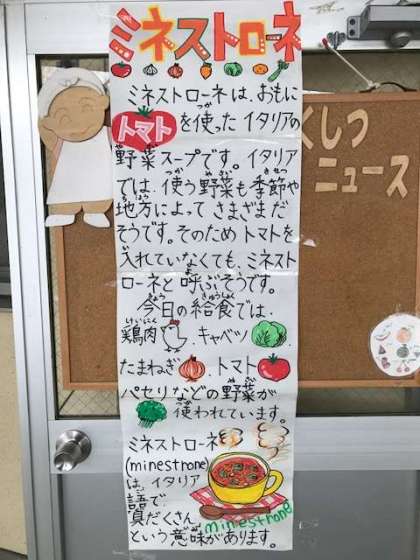 ミネストローネ
ミネストローネは、おもに
トマトを使ったイタリアの
野菜スープです。イタリア
では、使う野菜も季節や
地方によってさまざまだ
そうです。そのためトマトを
入れていなくても、ミネスト
ローネと呼ぶそうです。
今日の給食では、
鶏肉、キャベツ
たまねぎ、トマト
パセリなどの野菜が
使われています。
ミネストローネ
(minestrone)
は、イタリア
語で
具だくさん
という意味があります。
minestrone
くしつ
ニュース